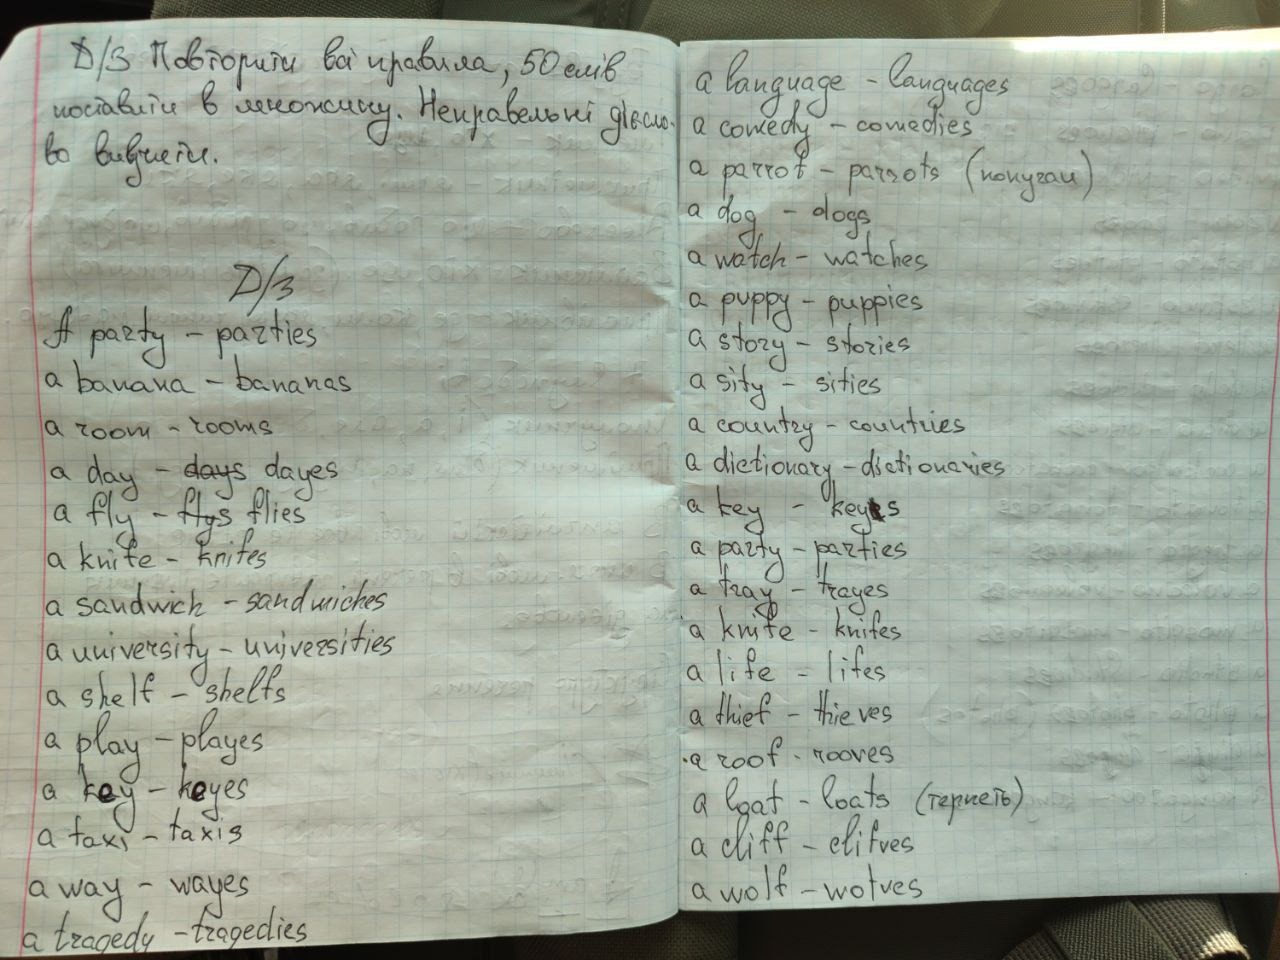 Д/З Повторити всі правила, 50 слів
поставити в множину. Неправельні дієсло-
во вивчити.
Д/з
A party – parties
a banana – bananas
a room – rooms
a day – days dayes
a fly – flys flies
a knife – knifes
a sandwich – sandwiches
a university – universities
a shelf – shelfs
a play – playes
a key – keyes
a taxi – taxis
a way – wayes
a tragedy – tragedies
a language – languages
a comedy – comedies
a parrot – parrots (попугаи)
a dog – dogs
a watch – watches
a puppy – puppies
a story – stories
a sity – sities
a country – countries
a dictionary – dictionaries
a key – keys
a party – parties
a tray – trayes
a knife – knifes
a life – lifes
a thief – thieves
a roof - rooves
a loat – loats (терпеть)
a cliff – clifves
a wolf – wolves